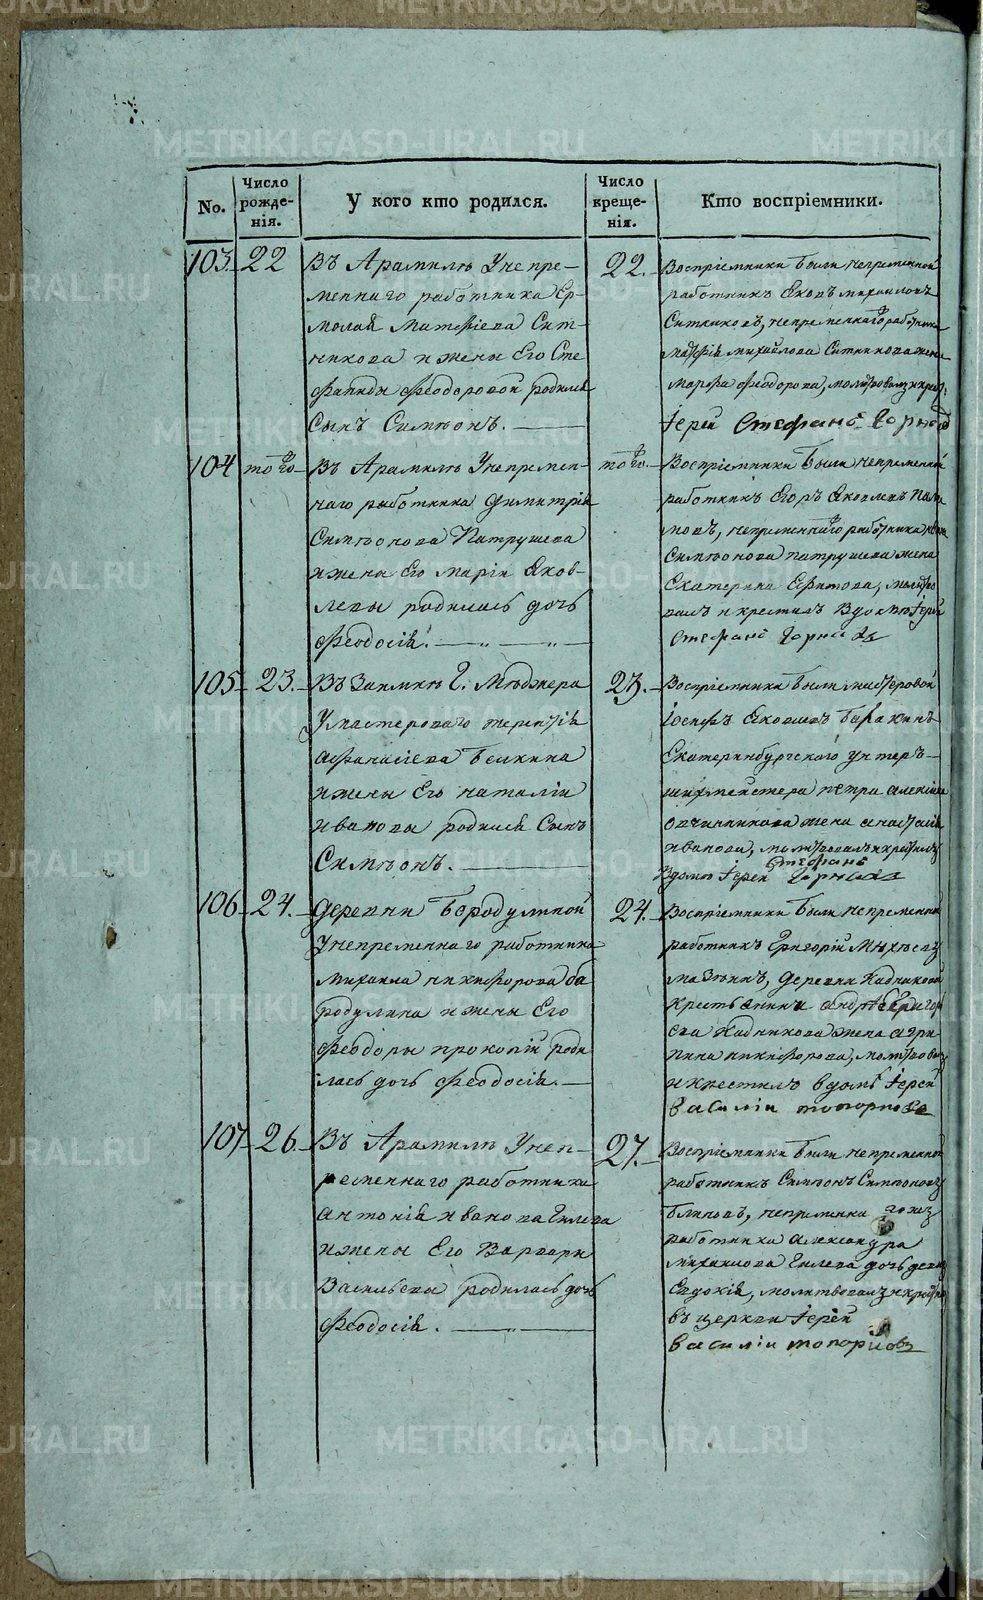 No.
Число рожде-нія.
У кого кто родился.
Число креще-нія.
Кто воспріемники.
103. 22
Въ Арамилѣ Унепре-
меннаго работника Ер-
молая Матфіева Сит-
никова и жены Его Сте
фаниды Феодоровой родился
Сынъ Симеонъ.
22.
Воспріемники были непременной
работникъ Яковъ михайловъ
Ситниковъ, непременнаго работника
Матфія михайлова Ситникова жена
Марфа Феодорова, молитвовалъ и крест.
Іерей Стефанъ Горныхъ
104 того
Въ Арамилѣ Унепремен-
наго работника Димитрія
Симеонова Патрушева
и жены Его Маріи Яков-
левы родилась дочь
Феодосія.
того.
Воспріемники были непременной
работникъ Егоръ Яковлевъ
мовъ, непременнаго работника
Симеонова патрушева жена
Екатерина Ефимова, молитво
валъ и крестилъ Вдомѣ Іерей
Стефанъ Горныхъ
105 23.
Въ Заимкѣ Г. Меджера
Умастероваго терентія
Афанасіева Белкина
и жены Его наталіи
Ивановы родился Сынъ
Симеонъ.
23.
Воспріемники были мастеровой
Іосифъ Яковлевъ
Екатеринбургскаго унтеръ-
шихтмейстера петра алексіева
овчинникова жена анастасія
иванова, молитвовалъ и крестилъ
Вдомѣ Іерей Стефанъ Горныхъ
106 24.
Деревни Бородулиной
Унепременнаго работника
михаила никифорова бо
родулина и жены Его
Феодоры прокопій роди
лась дочь Феодосія.
24.
Воспріемники были непременной
работникъ Григорій
деревни Кадниковой
крестьянина андрея Григор
ева Кадникова жена агри
пина никифорова, молитвовалъ
и крестилъ вдомѣ Іерей
Василіи топорковъ
107 26.
Въ Арамилѣ Унеп-
ременнаго работника
антонія иванова Гилева
и жены Его Варвары
Васильевы родилась дочь
Феодосія.
27.
Воспріемники были непременной
работникъ Симеонъ Симеоновъ
Блиновъ, непременнаго
работника александра
михаилова Гилева дочь девица
Евдокія, молитвовалъ и крестилъ
въ церкви Іерей
Василіи топорковъ
METRIKI.GASO-URAL.RU